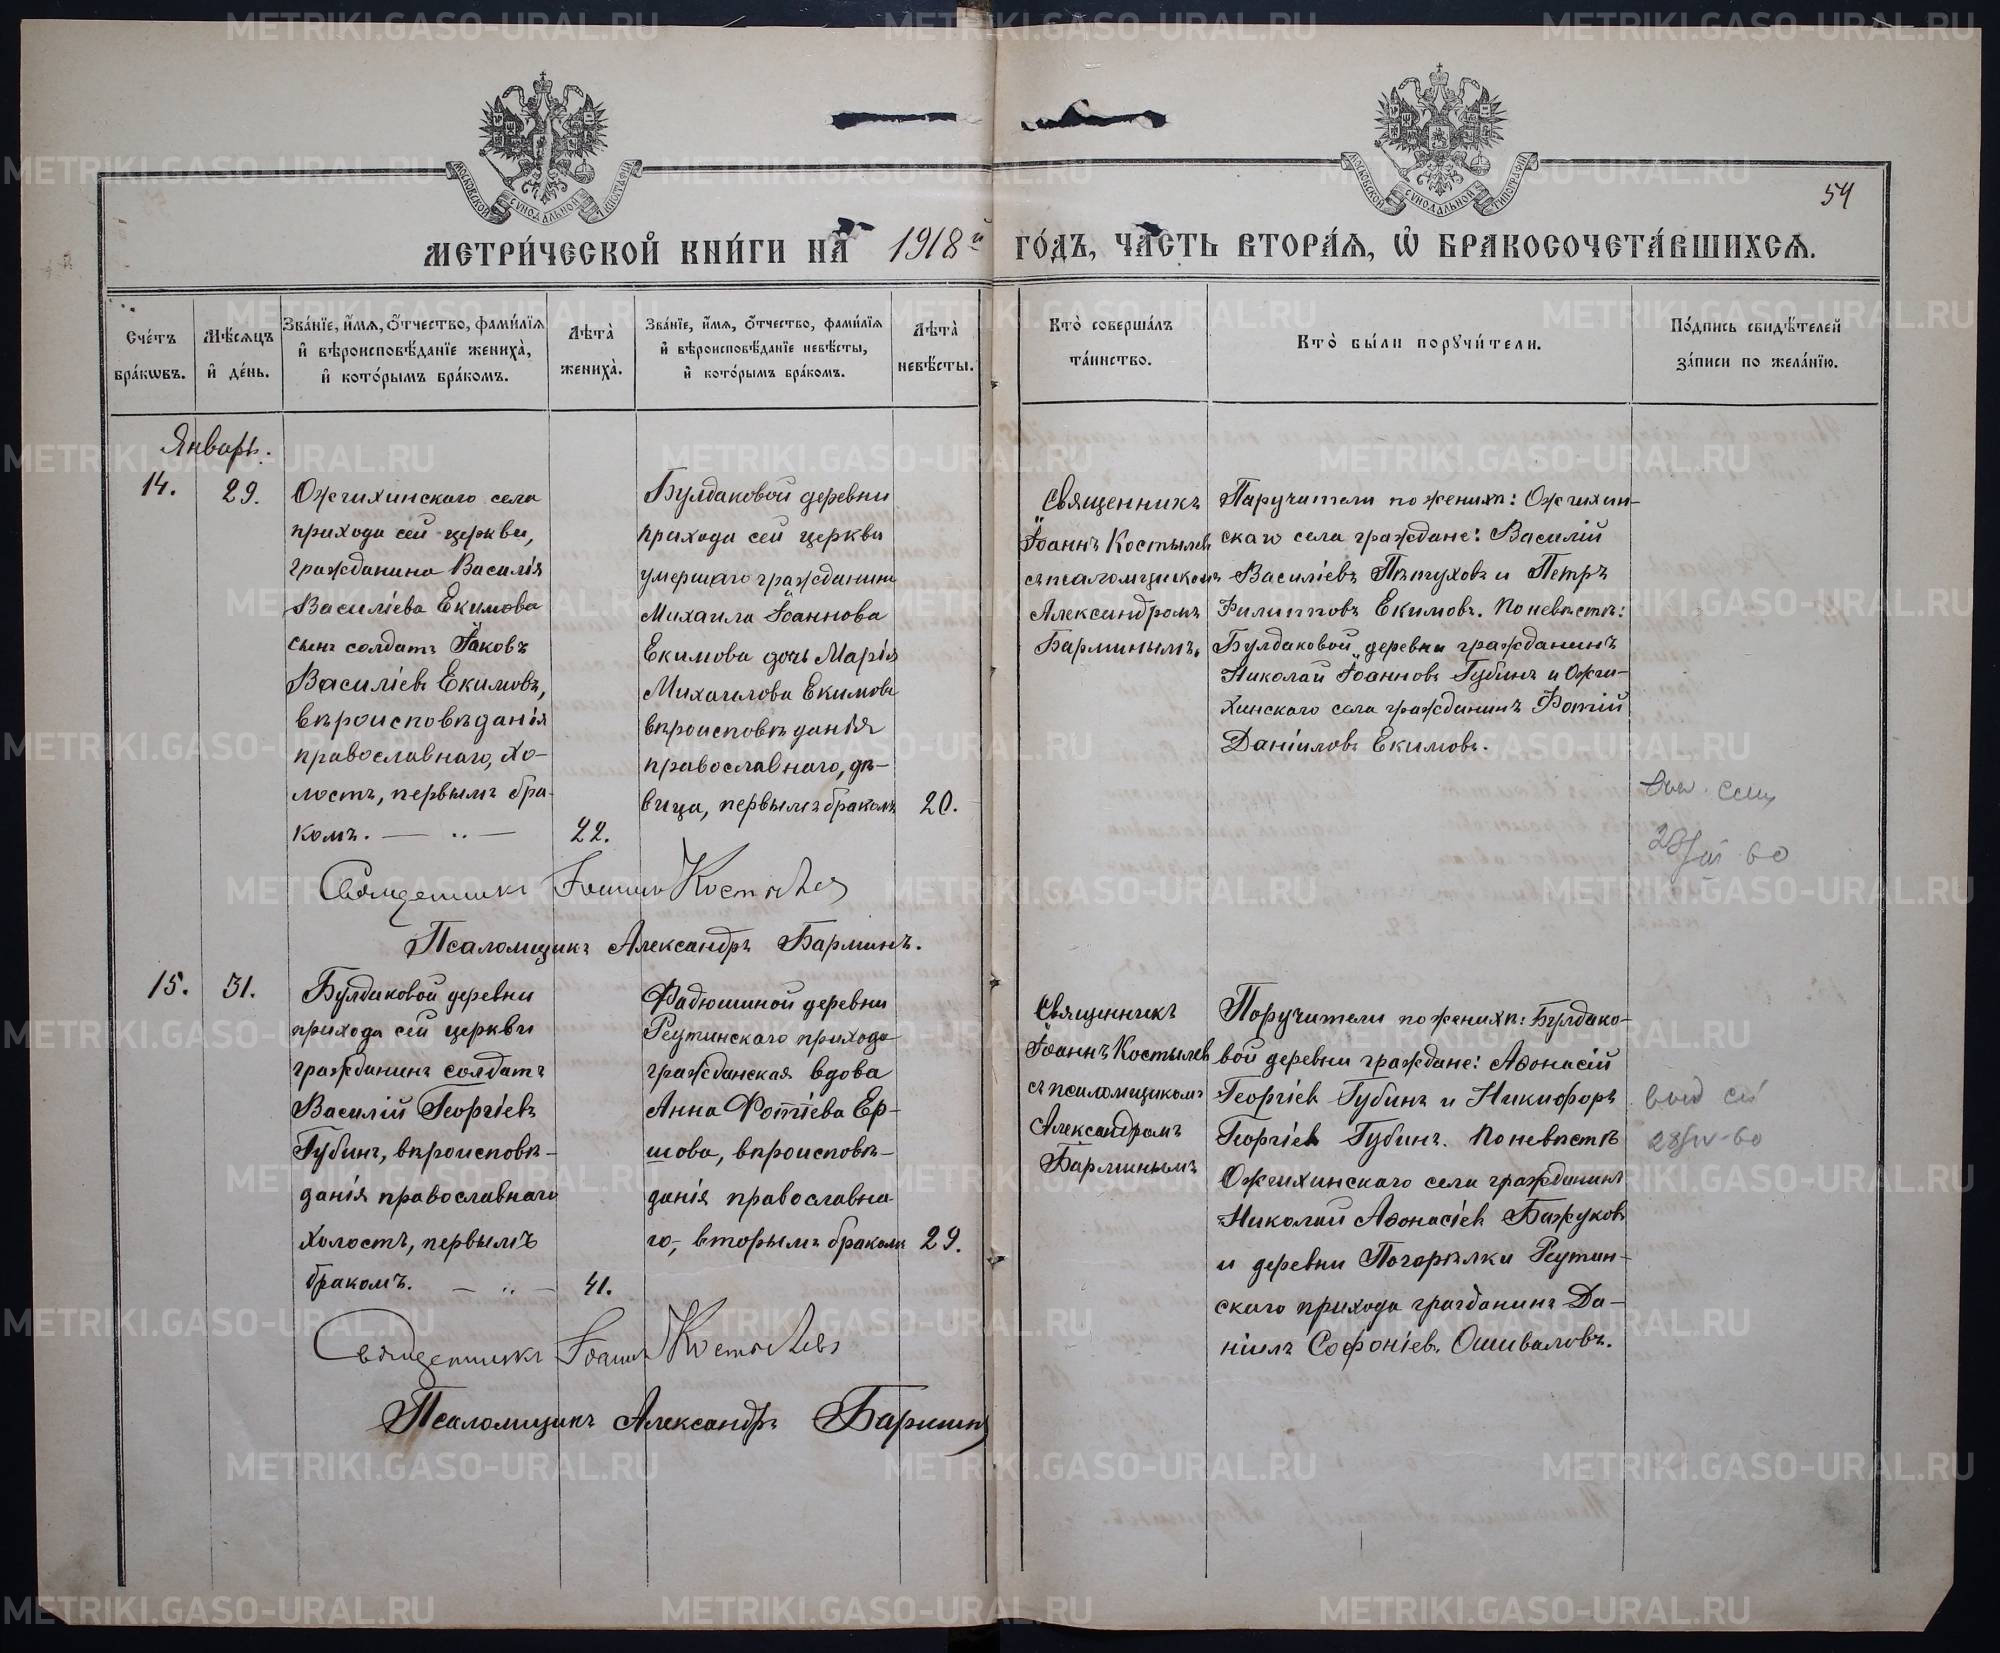 МЕТРИ́ЧЕСКОЙ КНИ́ГИ НА 1918й ГО́ДЪ, ЧА́СТЬ ВТОРА́Я, Ѡ БРАКОСОЧЕТА́ВШИХСЯ.
54
МОСКОВСКОЙ СѴНОДАЛЬНОЙ ТИПОГРАФІИ
МОСКОВСКОЙ СѴНОДАЛЬНОЙ ТИПОГРАФІИ
Сче́тъ бра́кѡвъ.
Мѣ́сяцъ и де́нь.
Зва́нїе, и́мя, о́тчество, фами́лїя и вѣроисповѣ́данїе жениха̀, и кото́рымъ бра́комъ.
Лѣта̀ жениха̀.
Зва́нїе, и́мя, о́тчество, фами́лїя и вѣроисповѣ́данїе невѣ́сты, и кото́рымъ бра́комъ.
Лѣта̀ невѣ́сты.
Кто̀ соверша́лъ та́инство.
Кто̀ бы́ли порꙋчи́тели.
По́дпись свидѣ́телей за́писи по жела́нїю.
Январь.
14.
29.
Ожгихинскаго села
прихода сей церкви,
гражданина Василія
Василіева Екимова
сынъ солдатъ Іаковъ
Василіевъ Екимовъ,
вѣроисповѣданія
православнаго, хо-
лостъ, первымъ бра-
комъ. — „ —
22.
Булдаковой деревни
прихода сей церкви
умершаго гражданина
Михаила Іоаннова
Екимова дочь Марія
Михаилова Екимова
вѣроисповѣданія
православнаго, дѣ-
вица, первымъ бракомъ
20.
Священникъ
Іоаннъ Костылев
съ псаломщикомъ
Александромъ
Барминымъ.
Паручители по женихѣ: Ожгихин-
скаго села граждане: Василій
Василіевъ Пѣтуховъ и Петръ
Филипповъ Екимовъ. По невѣстѣ:
Булдаковой деревни гражданинъ
Николай Іоанновъ Губинъ и Ожги-
хинскаго села гражданинъ Фотій
Даніиловъ Екимовъ.
Священникъ Іоаннъ Костылевъ
Псаломщикъ Александръ Барминъ.
15.
31.
Булдаковой деревни
прихода сей церкви
гражданинъ солдатъ
Василій Георгіевъ
Губинъ, вѣроисповѣ-
данія православнаго
холостъ, первымъ
бракомъ. — „ —
41.
Фадюшиной деревни
Реутинскаго прихода
гражданская вдова
Анна Фотіева Ер-
шова, вѣроисповѣ-
данія православна-
го, вторымъ бракомъ
29.
Священникъ
Іоаннъ Костылев
съ псаломщикомъ
Александромъ
Барминымъ
Поручители по женихѣ: Булдако-
вой деревни граждане: Афонасій
Георгіевъ Губинъ и Никифоръ
Георгіевъ Губинъ. По невѣстѣ
Ожгихинскаго села гражданинъ
Николай Афонасіевъ Бажуковъ
и деревни Погорѣлки Реутин-
скаго прихода гражданинъ Да-
ніилъ Софоніевъ Ошиваловъ.
Священникъ Іоаннъ Костылевъ
Псаломщикъ Александръ Барминъ
METRIKI.GASO-URAL.RU